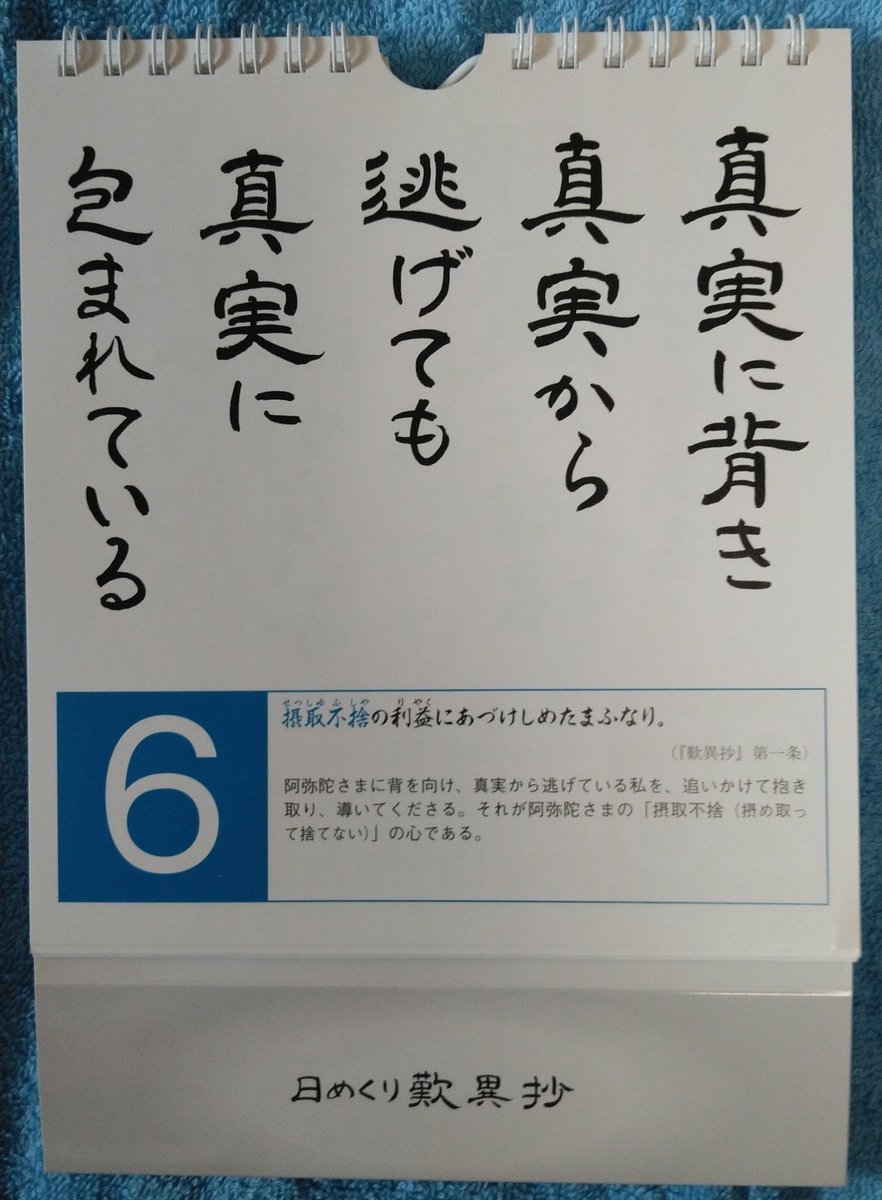 真実に背き
真実から
逃げても
真実に
包まれている
6
せっしゅふしゃ りやく
摂取不捨の利益にあづけしめたまふなり。
（『歎異抄』第一条）
阿弥陀さまに背を向け、真実から逃げている私を、追いかけて抱き
取り、導いてくださる。それが阿弥陀さまの「摂取不捨（摂め取っ
て捨てない）」の心である。
日めくり歎異抄